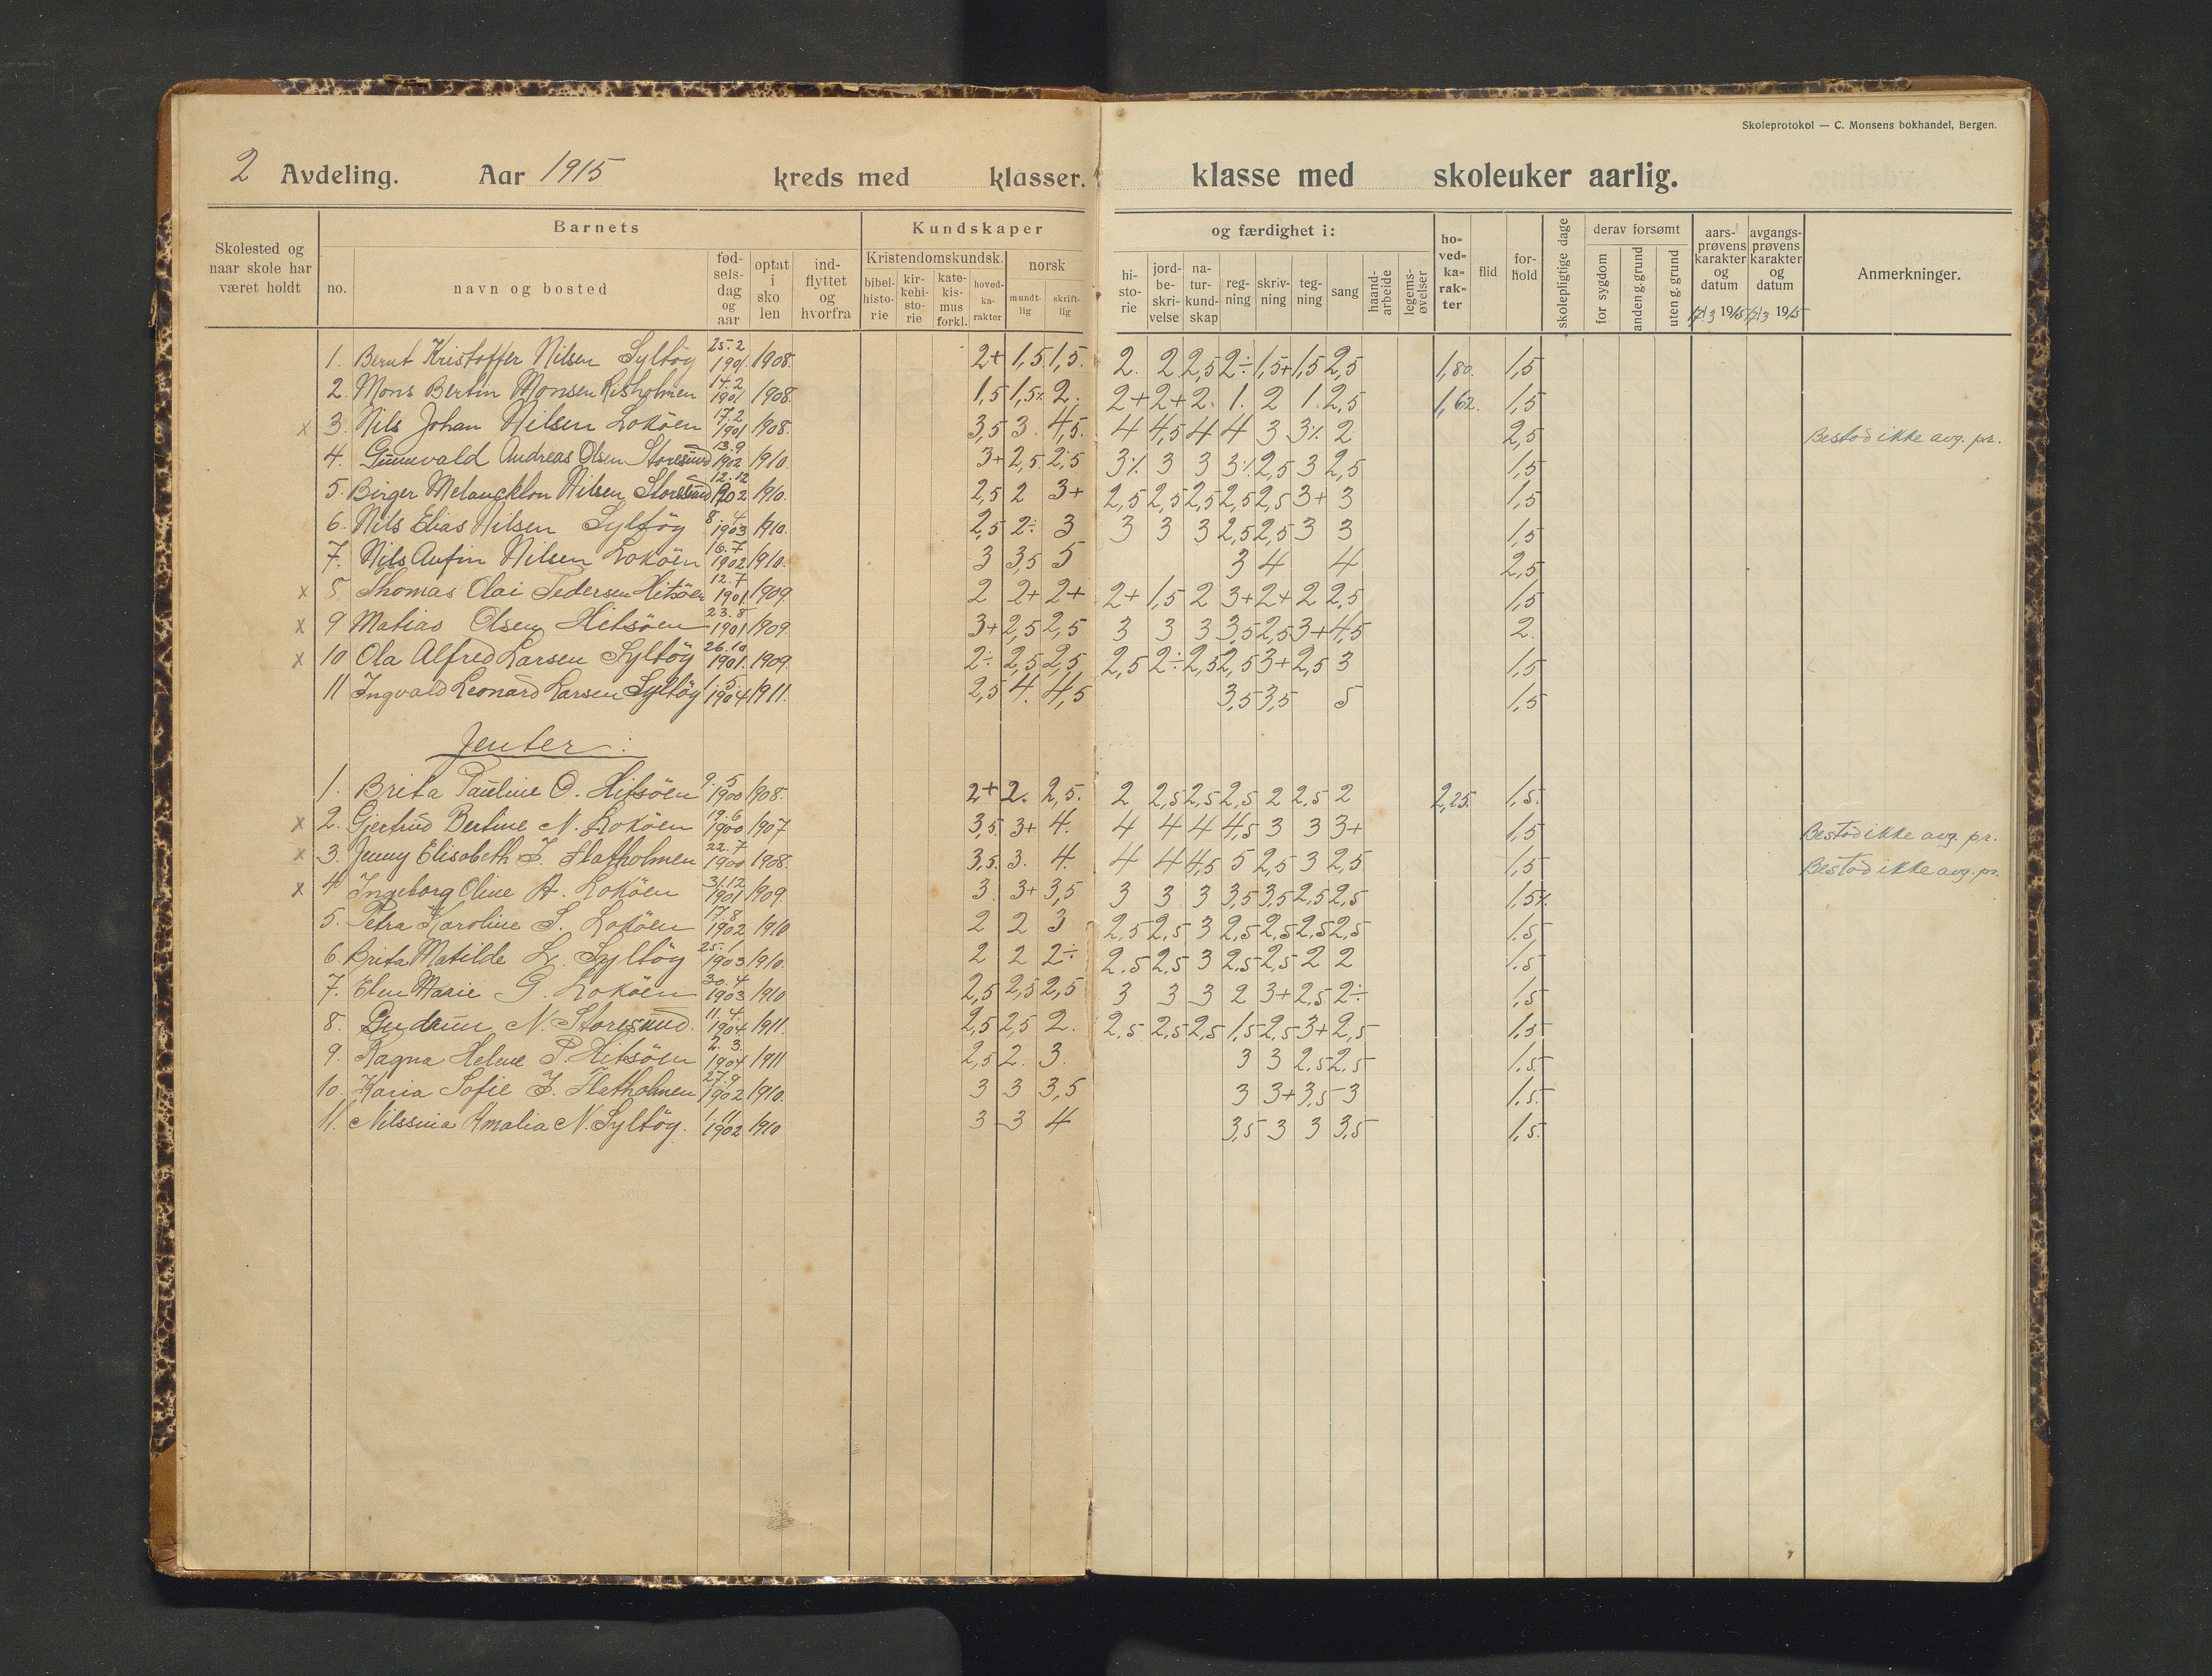 Skoleprotokol — C. Monsens bokhandel, Bergen.
2 Avdeling. Aar 1915 kreds med klasser. klasse med skoleuker aarlig.
Skolested og naar skole har været holdt
Barnets
no. navn og bosted
fødselsdag og aar
optat i skolen
indflyttet og hvorfra
Kundskaper og færdighet i:
Kristendomskundsk.
bibelhistorie kirkehistorie katekismus forkl. hovedkarakter
norsk
mundtlig skriftlig
historie jordbeskrivelse naturkundskap regning skrivning tegning sang haandarbeide legemsøvelser
hovedkarakter flid forhold skolepligtige dage
derav forsømt
for sygdom anden g. grund uten g. grund
aarsprøvens karakter og datum 17/3 1915
avgangsprøvens karakter og datum 17/3 1915
Anmerkninger.
1. Bernt Kristoffer Nilsen Syltöy 25.2 1901. 1908. 2+ 1,5 1,5. 2. 2 2,5 2÷ 1,5+ 1,5 2,5 1,80. 1,5
2. Mons Bertin Monsen Risholmen 14.2 1901 1908. 1,5 1,5% 2. 2+ 2+ 2. 1. 2 1. 2,5 1,62. 1,5
x 3. Nils Johan Nilsen Loköen 17.2 1901 1908. 3,5 3. 4,5. 4 4,5 4 4 3 3% 2 2,5 Bestod ikke avg. pr.
4. Gunnvald Andreas Olsen Storesund 13.9 1902 1910. 3+ 2,5. 2,5 3% 3 3 3% 2,5 3 2,5 1,5
5. Birger Melanckton Nilsen Storesund 12.12 1902 1910. 2,5 2 3+ 2,5 2,5 2,5 2,5 2,5 3+ 3 1,5
6. Nils Elias Nilsen Syltöy 8.4 1903 1910. 2,5 2÷ 3 3 3 3 2,5 2,5 3 3 1,5
7. Nils Anfin Nilsen Loköen 16.7 1902 1910. 3 3,5 5 3 4 4 2,5
x 8 Thomas Olai Pedersen Hitsöen 12.7 1901. 1909 2 2+ 2+ 2+ 1,5 2 3+ 2+ 2 2,5 1,5
x 9 Matias Olsen Hitsöen 23.8 1901 1909. 3+ 2,5 2,5 3 3 3 3,5 2,5 3+ 4,5 2.
x 10 Ola Alfred Larsen Syltöy 26.10 1901. 1909. 2÷ 2,5 2,5 2,5 2÷ 2,5 2,5 3+ 2,5 3 1,5
11 Ingvald Leonard Larsen Syltöy 1.5. 1904 1911. 2,5 4. 4,5 3,5 3,5 5 1,5
Jenter:
1. Brita Pauline O. Hitsöen 9.5 1900 1908. 2+ 2. 2,5. 2 2,5 2,5 2,5 2 2,5 2 2,25. 1,5.
x 2. Gjertrud Bertine N. Loköen 19.6 1900 1907 3,5. 3+ 4. 4 4 4 4,5 3 3 3+ 1,5 Bestod ikke avg. pr.
x 3. Jenny Elisabeth J. Flatholmen 22.7 1900 1908. 3,5. 3. 4. 4 4 4,5 5 2,5 3 2,5 1,5 Bestod ikke avg. pr.
x 4 Ingeborg Oline A. Loköen 31.12 1901 1909. 3 3+ 3,5 3 3 3 3,5 3,5 2,5 2,5 1,5%.
5. Petra Karoline S. Loköen 17.8 1902 1910 2 2 3 2,5 2,5 3 2,5 2,5 2,5 2,5 1,5
6. Brita Matilde L. Syltöy 25.1 1903 1910. 2 2 2÷ 2,5 2,5 3 2,5 2,5 2 2 1,5
7. Elen Marie G. Loköen 30.4 1903 1910 2,5 2,5 2,5 3 3 3 2 3+ 2,5 2÷ 1,5
8. Gudrun N. Storesund. 11.4. 1904 1911. 2,5 2,5 2. 2,5 2,5 2,5 1,5 2,5 3+ 2,5 1,5
9. Ragna Helene P. Hitsöen 2.3. 1904 1911 2,5 2. 3. 3 3 2,5 2,5 1,5.
10. Karia Sofie J. Flatholmen 27.9 1902 1910. 3 3 3,5 3 3+ 3,5 3 1,5.
11. Nilssina Amalia N. Syltöy. 1.11 1902 1910 3 3 4 3,5 3 3 3,5 1,5.